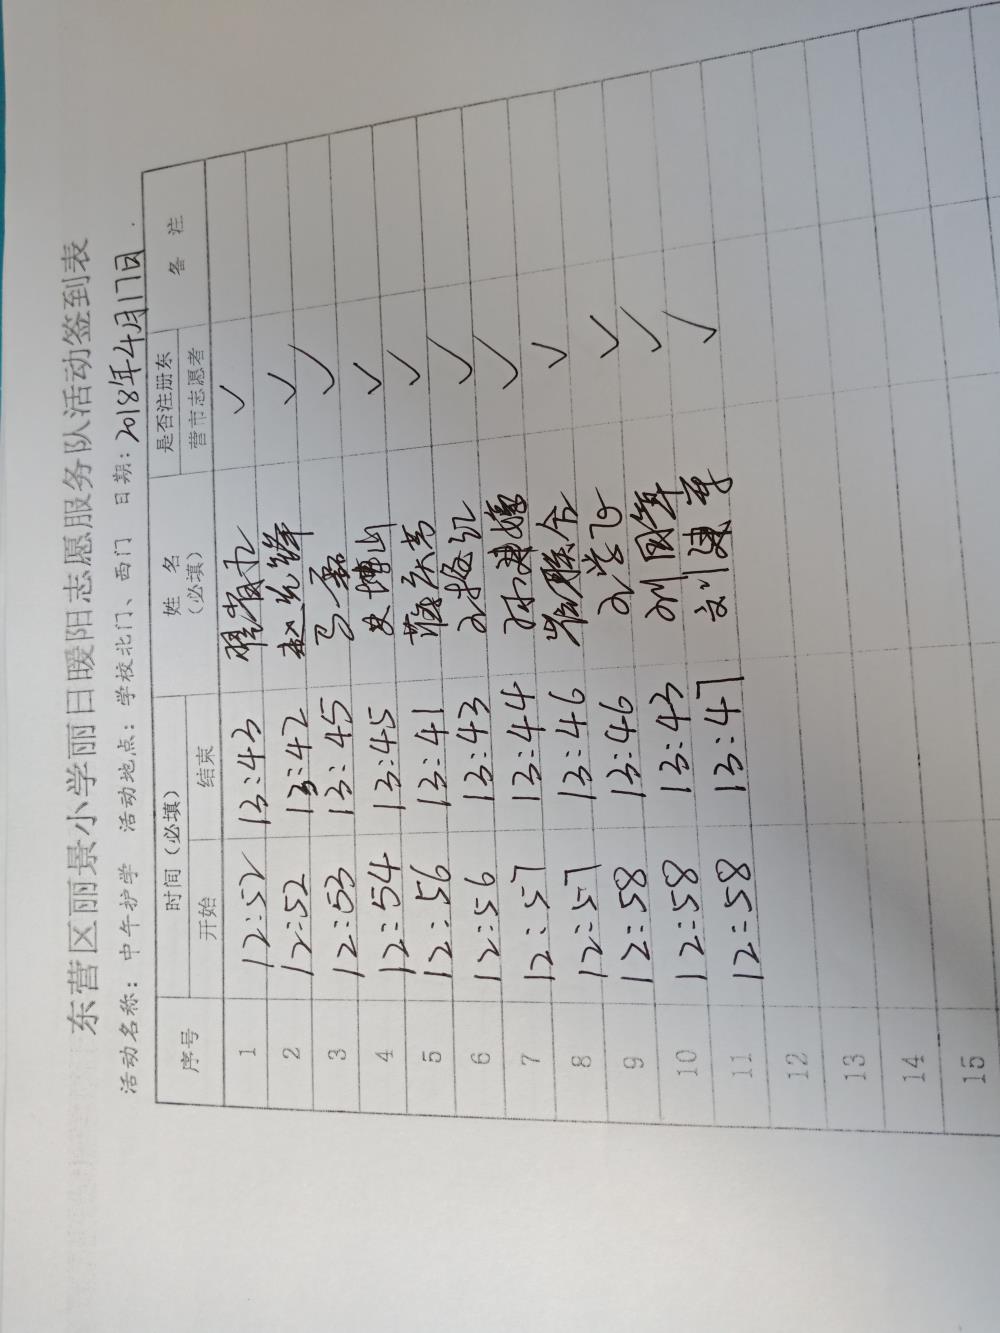 东营区丽景小学丽日暖阳志愿服务队活动签到表
活动名称：中午护学 活动地点：学校北门、西门 日期：2018年4月17日
序号 时间（必填） 姓名（必填） 是否注册东营市志愿者 备注
开始 结束
1 12:52 13:43 ✓
2 12:52 13:42 赵光锋 ✓
3 12:53 13:45 马磊 ✓
4 12:54 13:45 史博山 ✓
5 12:56 13:41 ✓
6 12:56 13:43 ✓
7 12:57 13:44 孙建嫔 ✓
8 12:57 13:46 崔联合 ✓
9 12:58 13:46 ✓
10 12:58 13:43 刘国军 ✓
11 12:58 13:47 刘建军 ✓
12
13
14
15